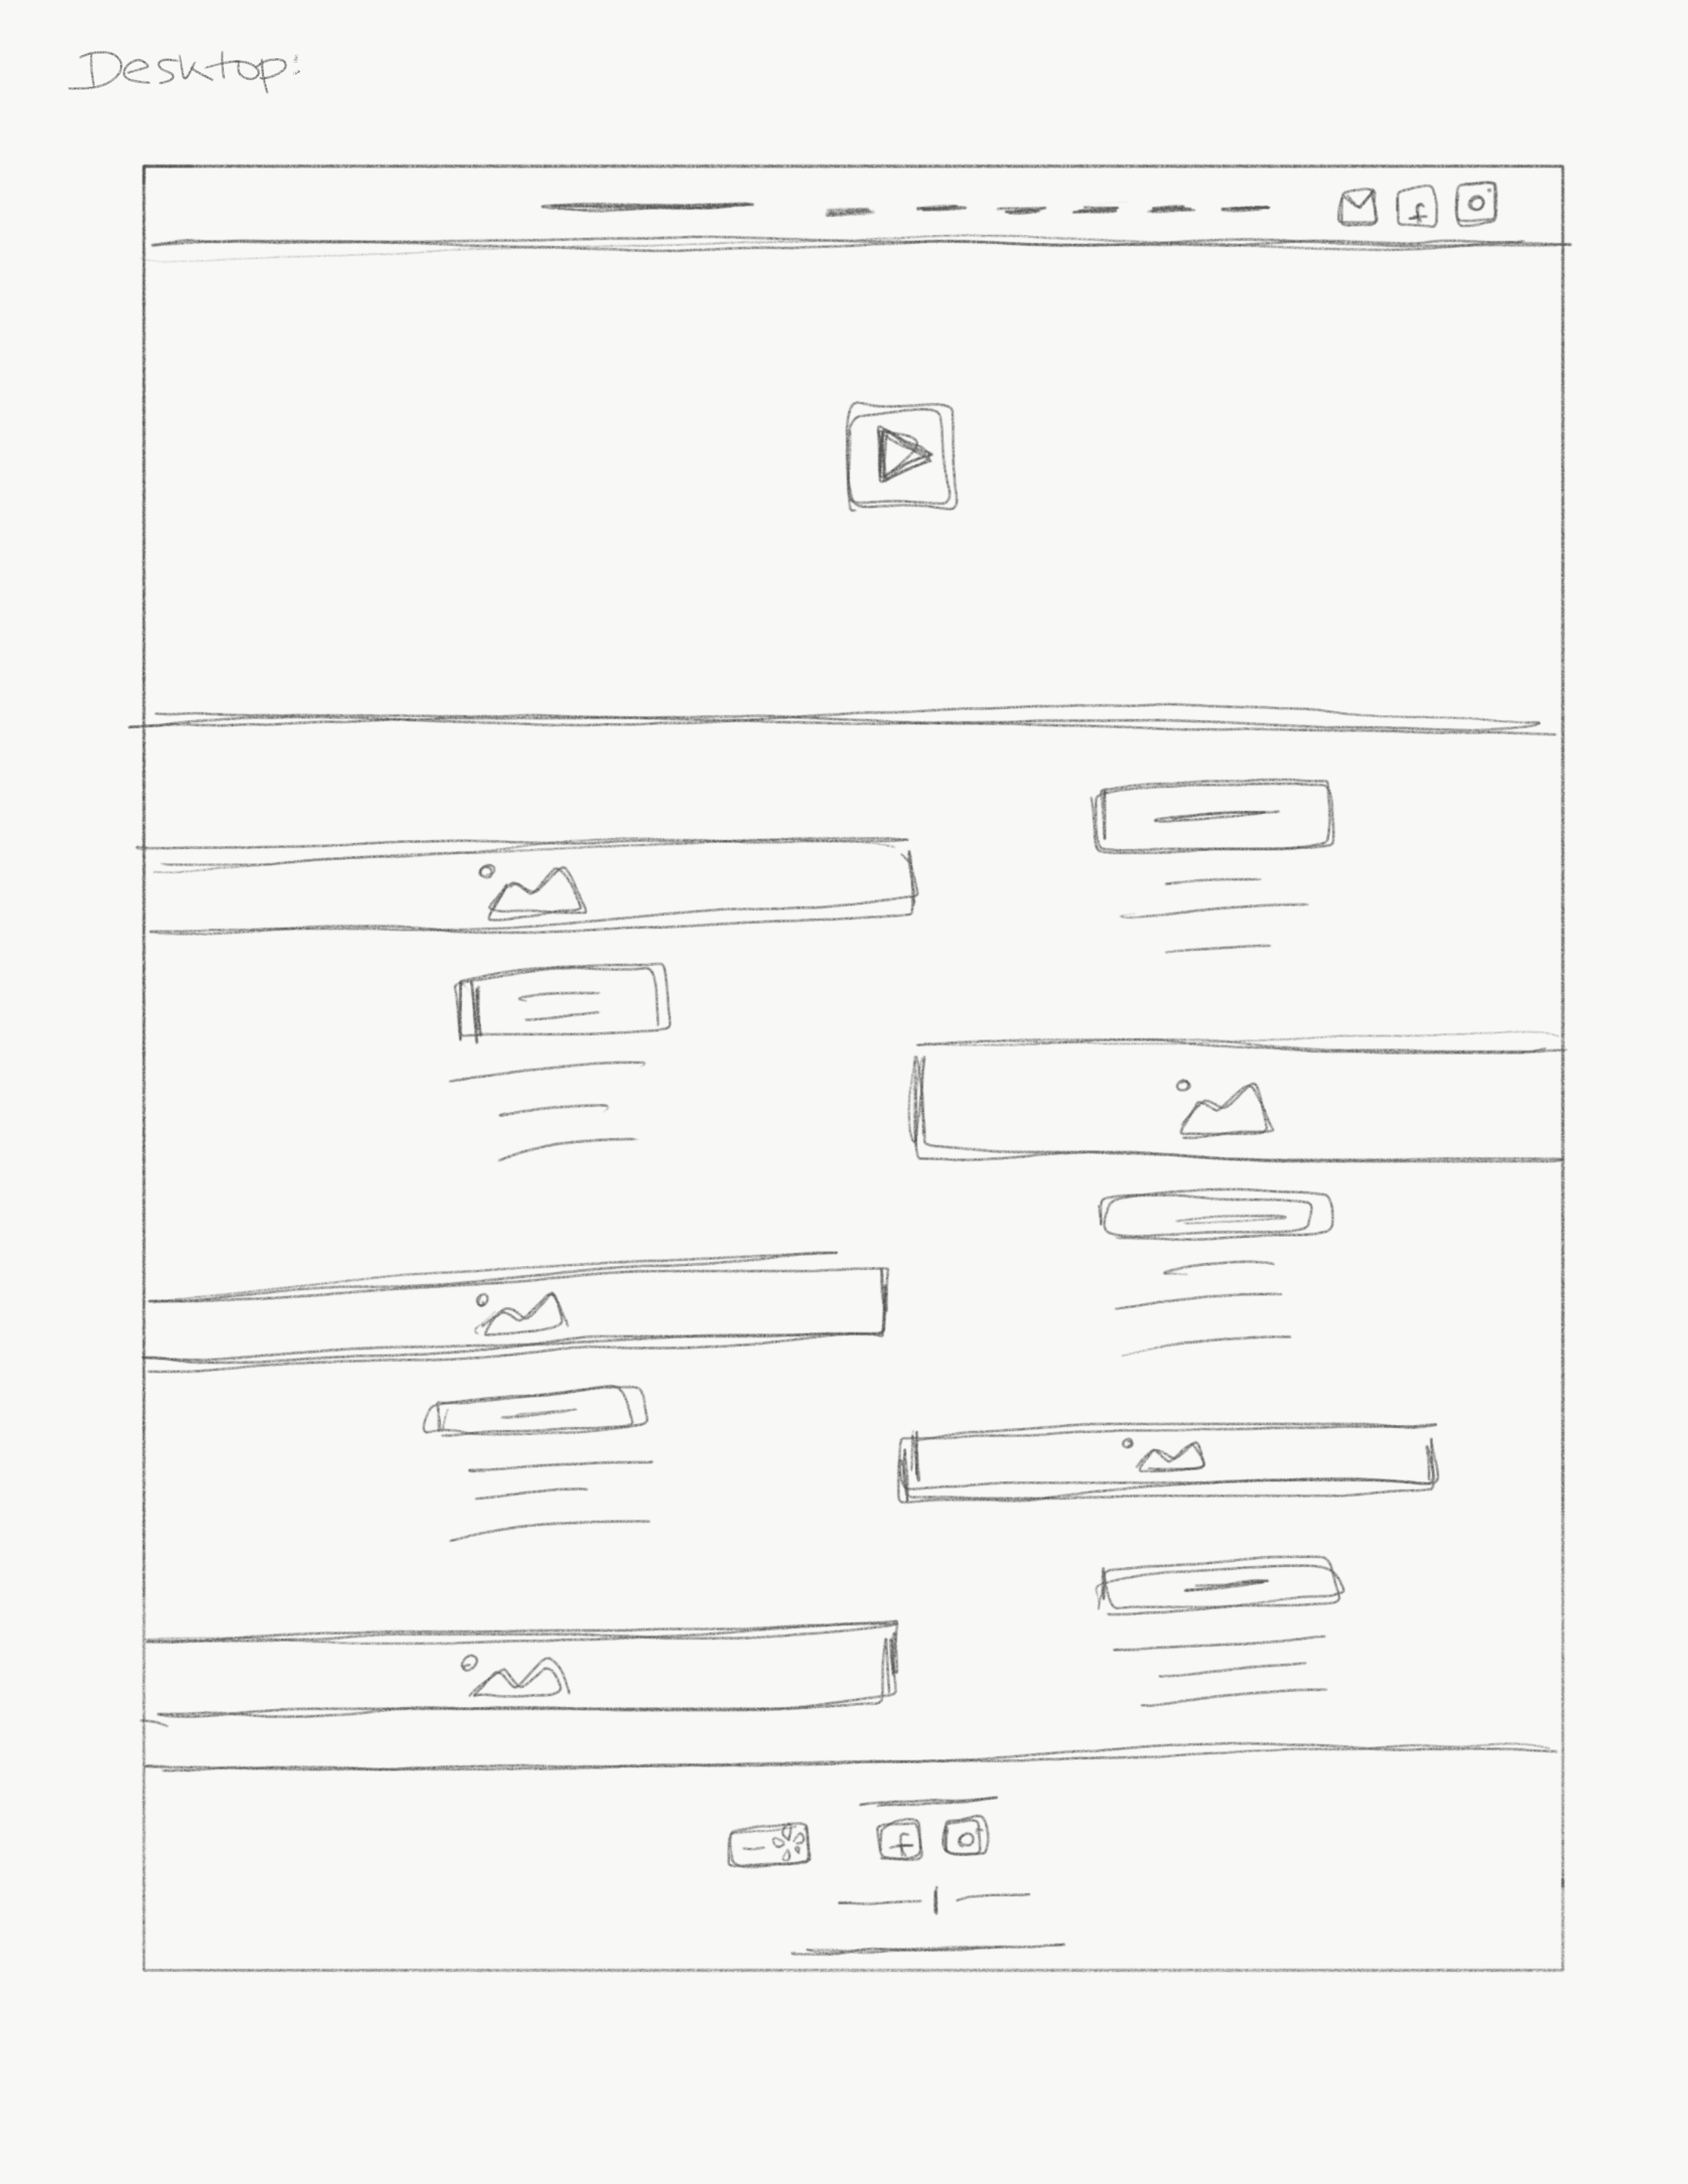 Desktop:
f
f